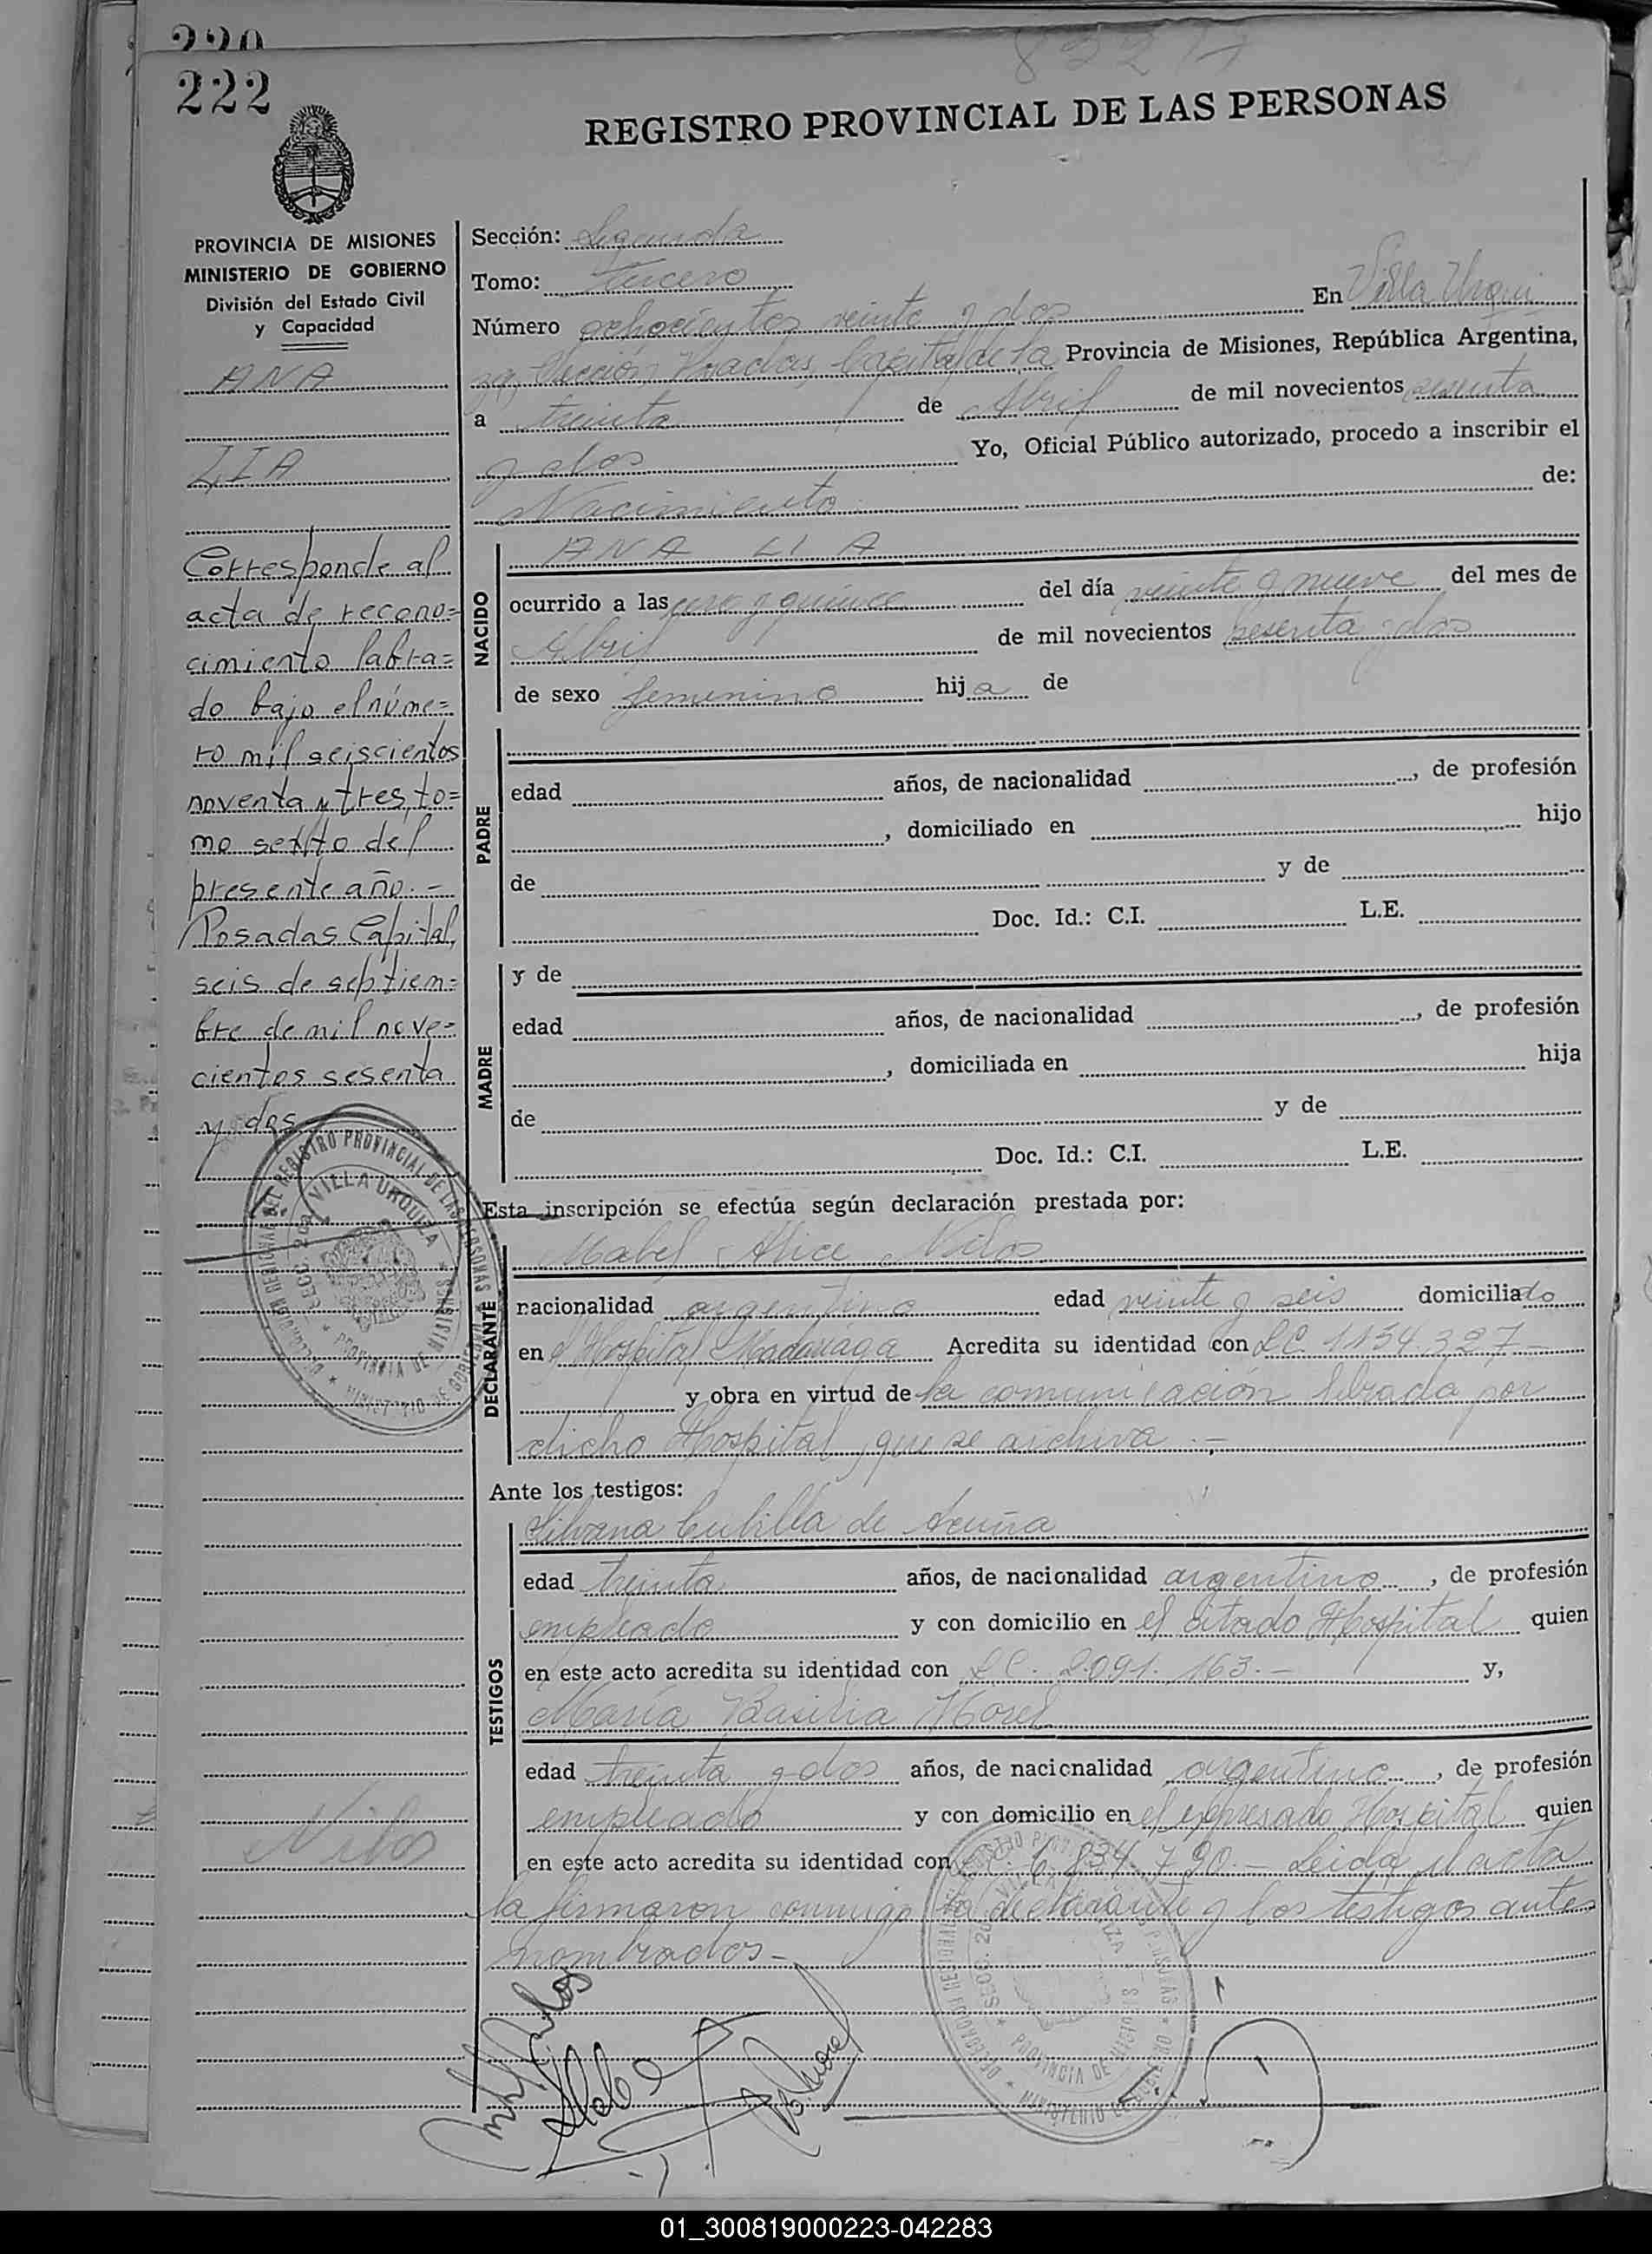 220
222
REGISTRO PROVINCIAL DE LAS PERSONAS
PROVINCIA DE MISIONES
MINISTERIO DE GOBIERNO
División del Estado Civil
y Capacidad
ANA
LIA
Corresponde al
acta de recono=
cimiento labra=
do bajo el núme=
ro mil seiscientos
noventa y tres, to=
mo sexto del
presente año.-
Posadas Capital,
seis de septiem=
bre de mil nove=
cientos sesenta
y dos
Sección: Segunda
Tomo: Tercero
Número ochocientos veinte y dos En Villa Urqui
za, Sección Posadas, Capital de la Provincia de Misiones, República Argentina,
a treinta de Abril de mil novecientos sesenta
y dos Yo, Oficial Público autorizado, procedo a inscribir el
Nacimiento de:
NACIDO
ANA LIA
ocurrido a las uno y quince del día veinte y nueve del mes de
Abril de mil novecientos sesenta y dos
de sexo femenino hija de
PADRE
edad años, de nacionalidad , de profesión
, domiciliado en hijo
de y de
Doc. Id.: C.I. L.E.
MADRE
y de
edad años, de nacionalidad , de profesión
, domiciliada en hija
de y de
Doc. Id.: C.I. L.E.
Esta inscripción se efectúa según declaración prestada por:
DECLARANTE
Mabel Alice Nilos
nacionalidad argentino edad veinte y seis domiciliado
en el Hospital Madariaga Acredita su identidad con LC. 1.154.327-
y obra en virtud de la comunicación librada por
dicho Hospital, que se archiva.-
Ante los testigos:
TESTIGOS
Silvana Cubilla de Acuña
edad treinta años, de nacionalidad argentino, de profesión
empleado y con domicilio en el citado Hospital quien
en este acto acredita su identidad con LC. 2.091.163.- y,
María Basilia Morel
edad treinta y dos años, de nacionalidad argentino, de profesión
empleado y con domicilio en el expresado Hospital quien
en este acto acredita su identidad con 6.834.790.- Leida el acta
la firmaron conmigo la declarante y los testigos antes
nombrados-
Nilos
DELEGACION REGIONAL DEL REGISTRO PROVINCIAL DE LAS PERSONAS
VILLA URQUIZA
SECC. 2da
PROVINCIA DE MISIONES
MINISTERIO DE GOBIERNO
B. Morel
01_300819000223-042283